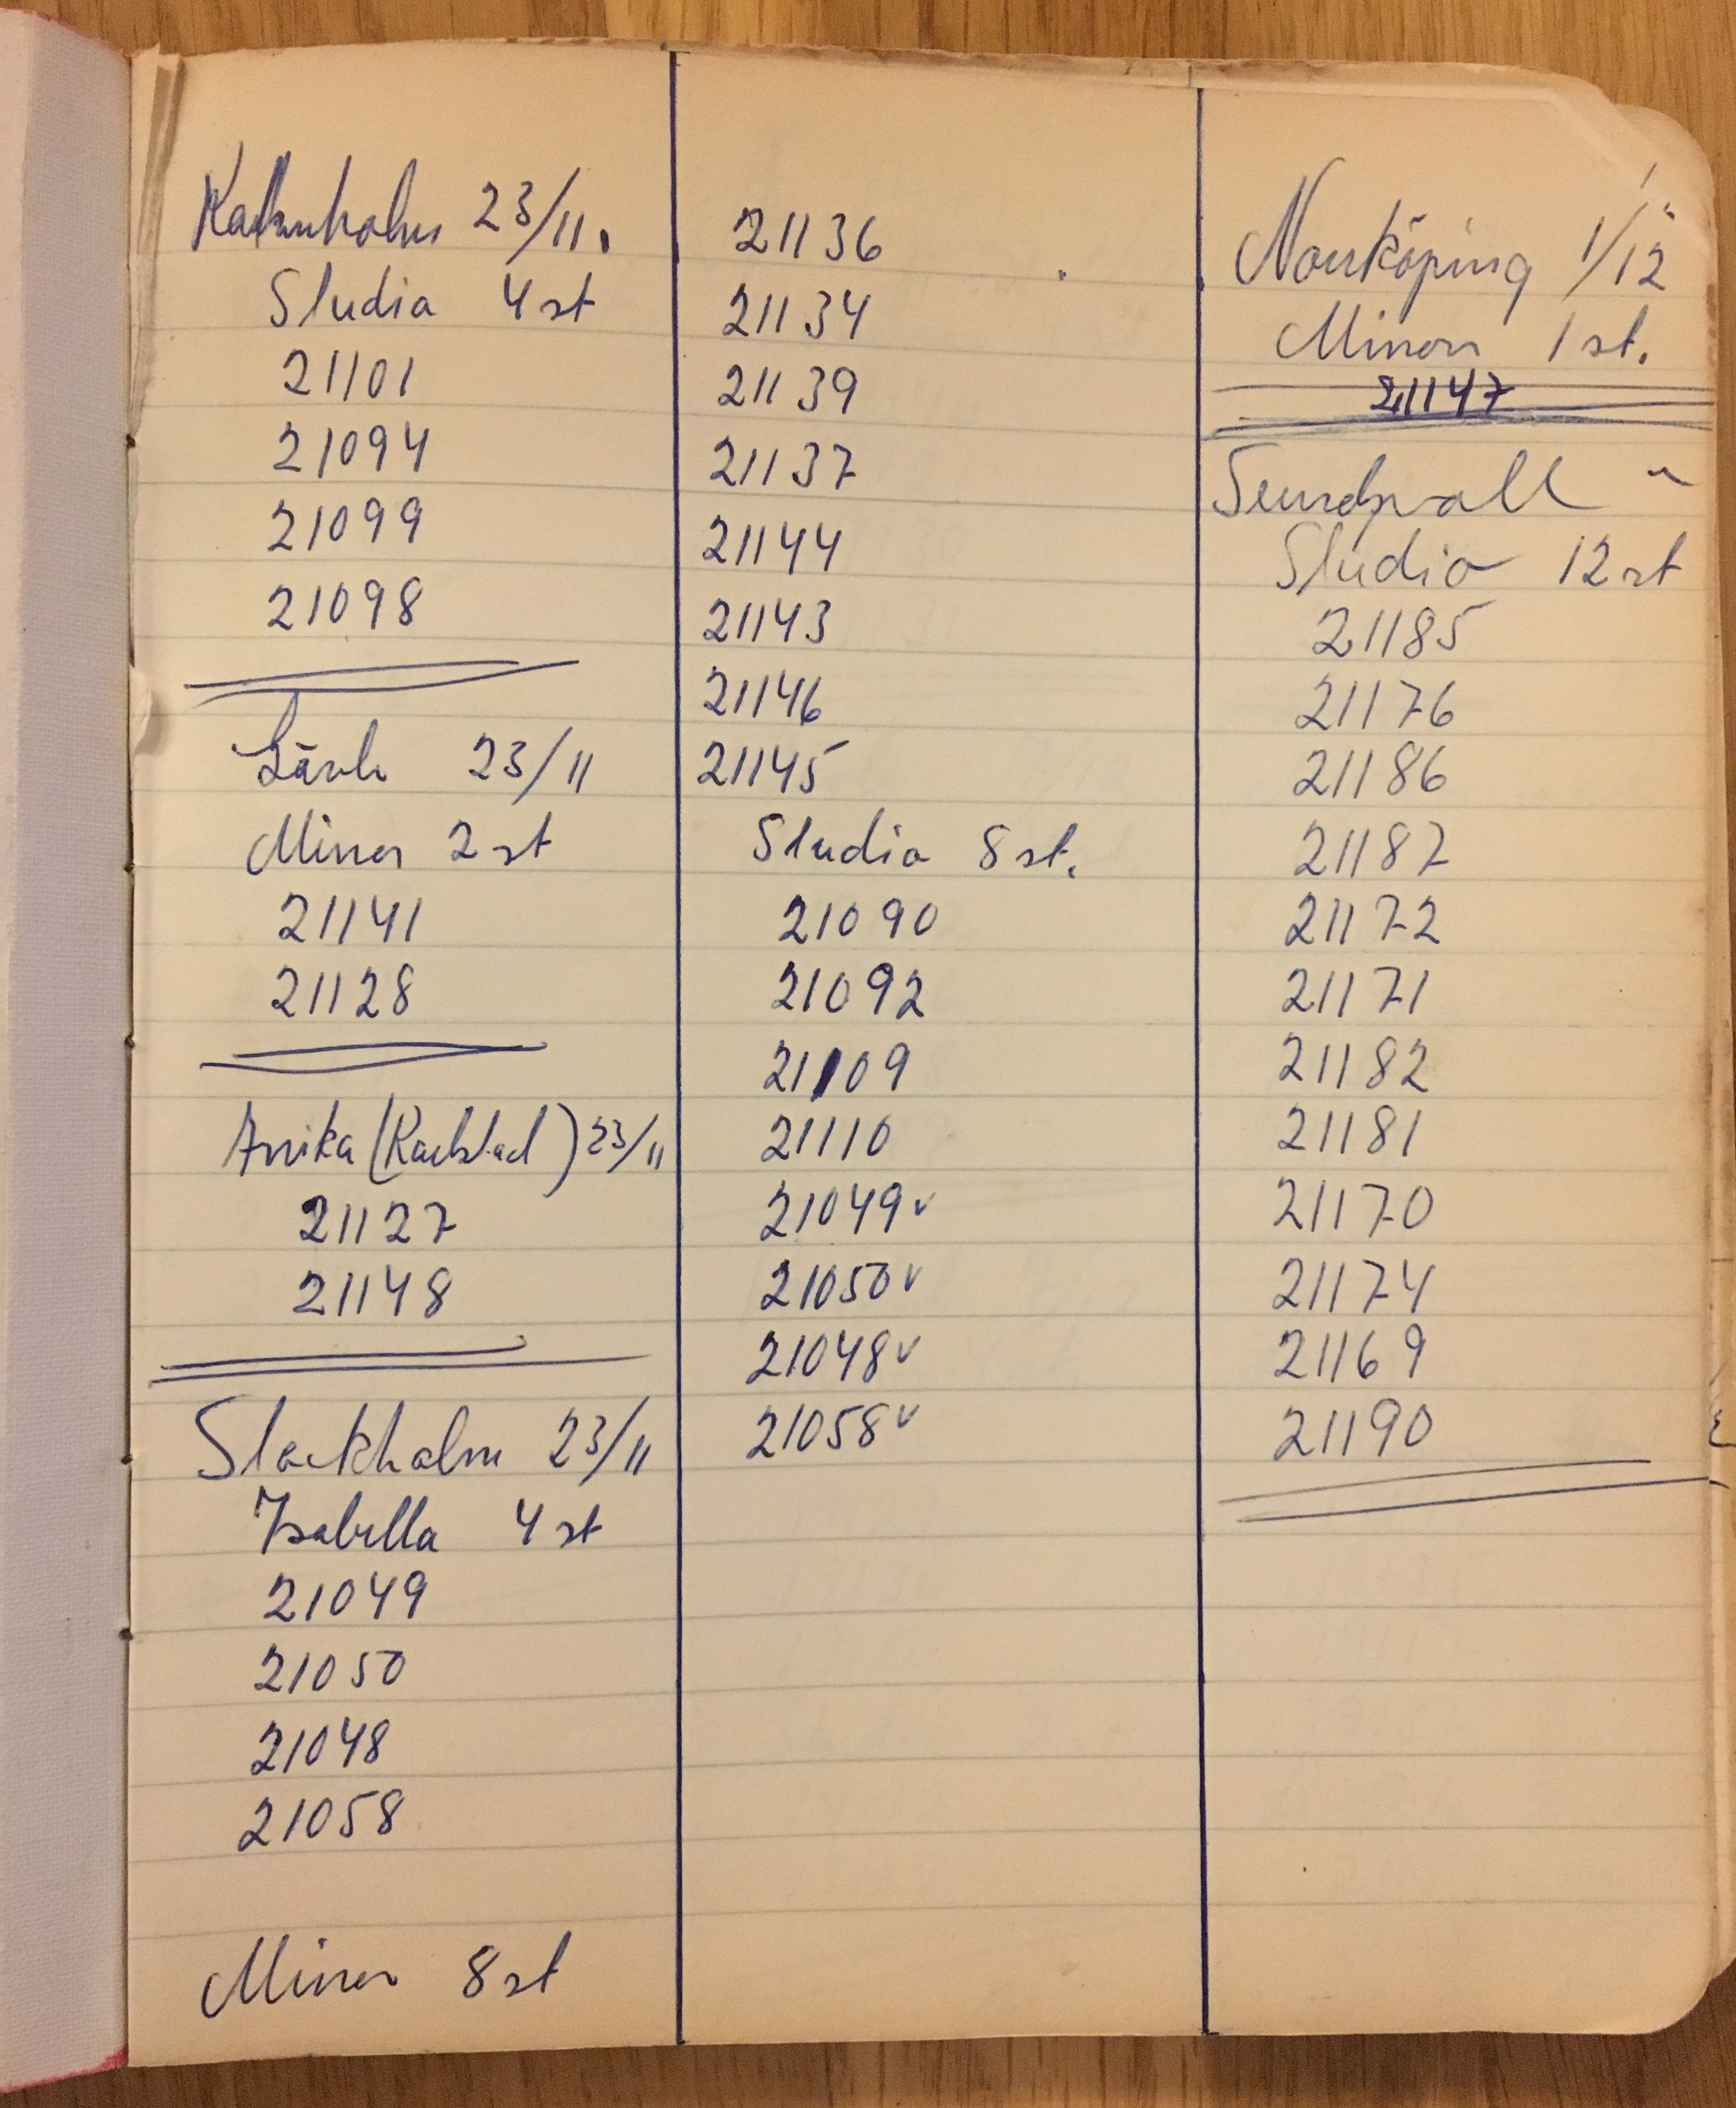 Katrineholm 23/11.
Studia 4 st
21101
21094
21099
21098
Gävle 23/11
Minor 2 st
21141
21128
Arvika (Karlstad) 23/11
21127
21148
Stockholm 23/11
Isabella 4 st
21049
21050
21048
21058
Minor 8 st
21136
21134
21139
21137
21144
21143
21146
21145
Studia 8 st.
21090
21092
21109
21110
21049 v
21050 v
21048 v
21058 v
Norrköping 1/12
Minor 1 st.
21147
Sundsvall "
Studia 12 st
21185
21176
21186
21187
21172
21171
21182
21181
21170
21174
21169
21190